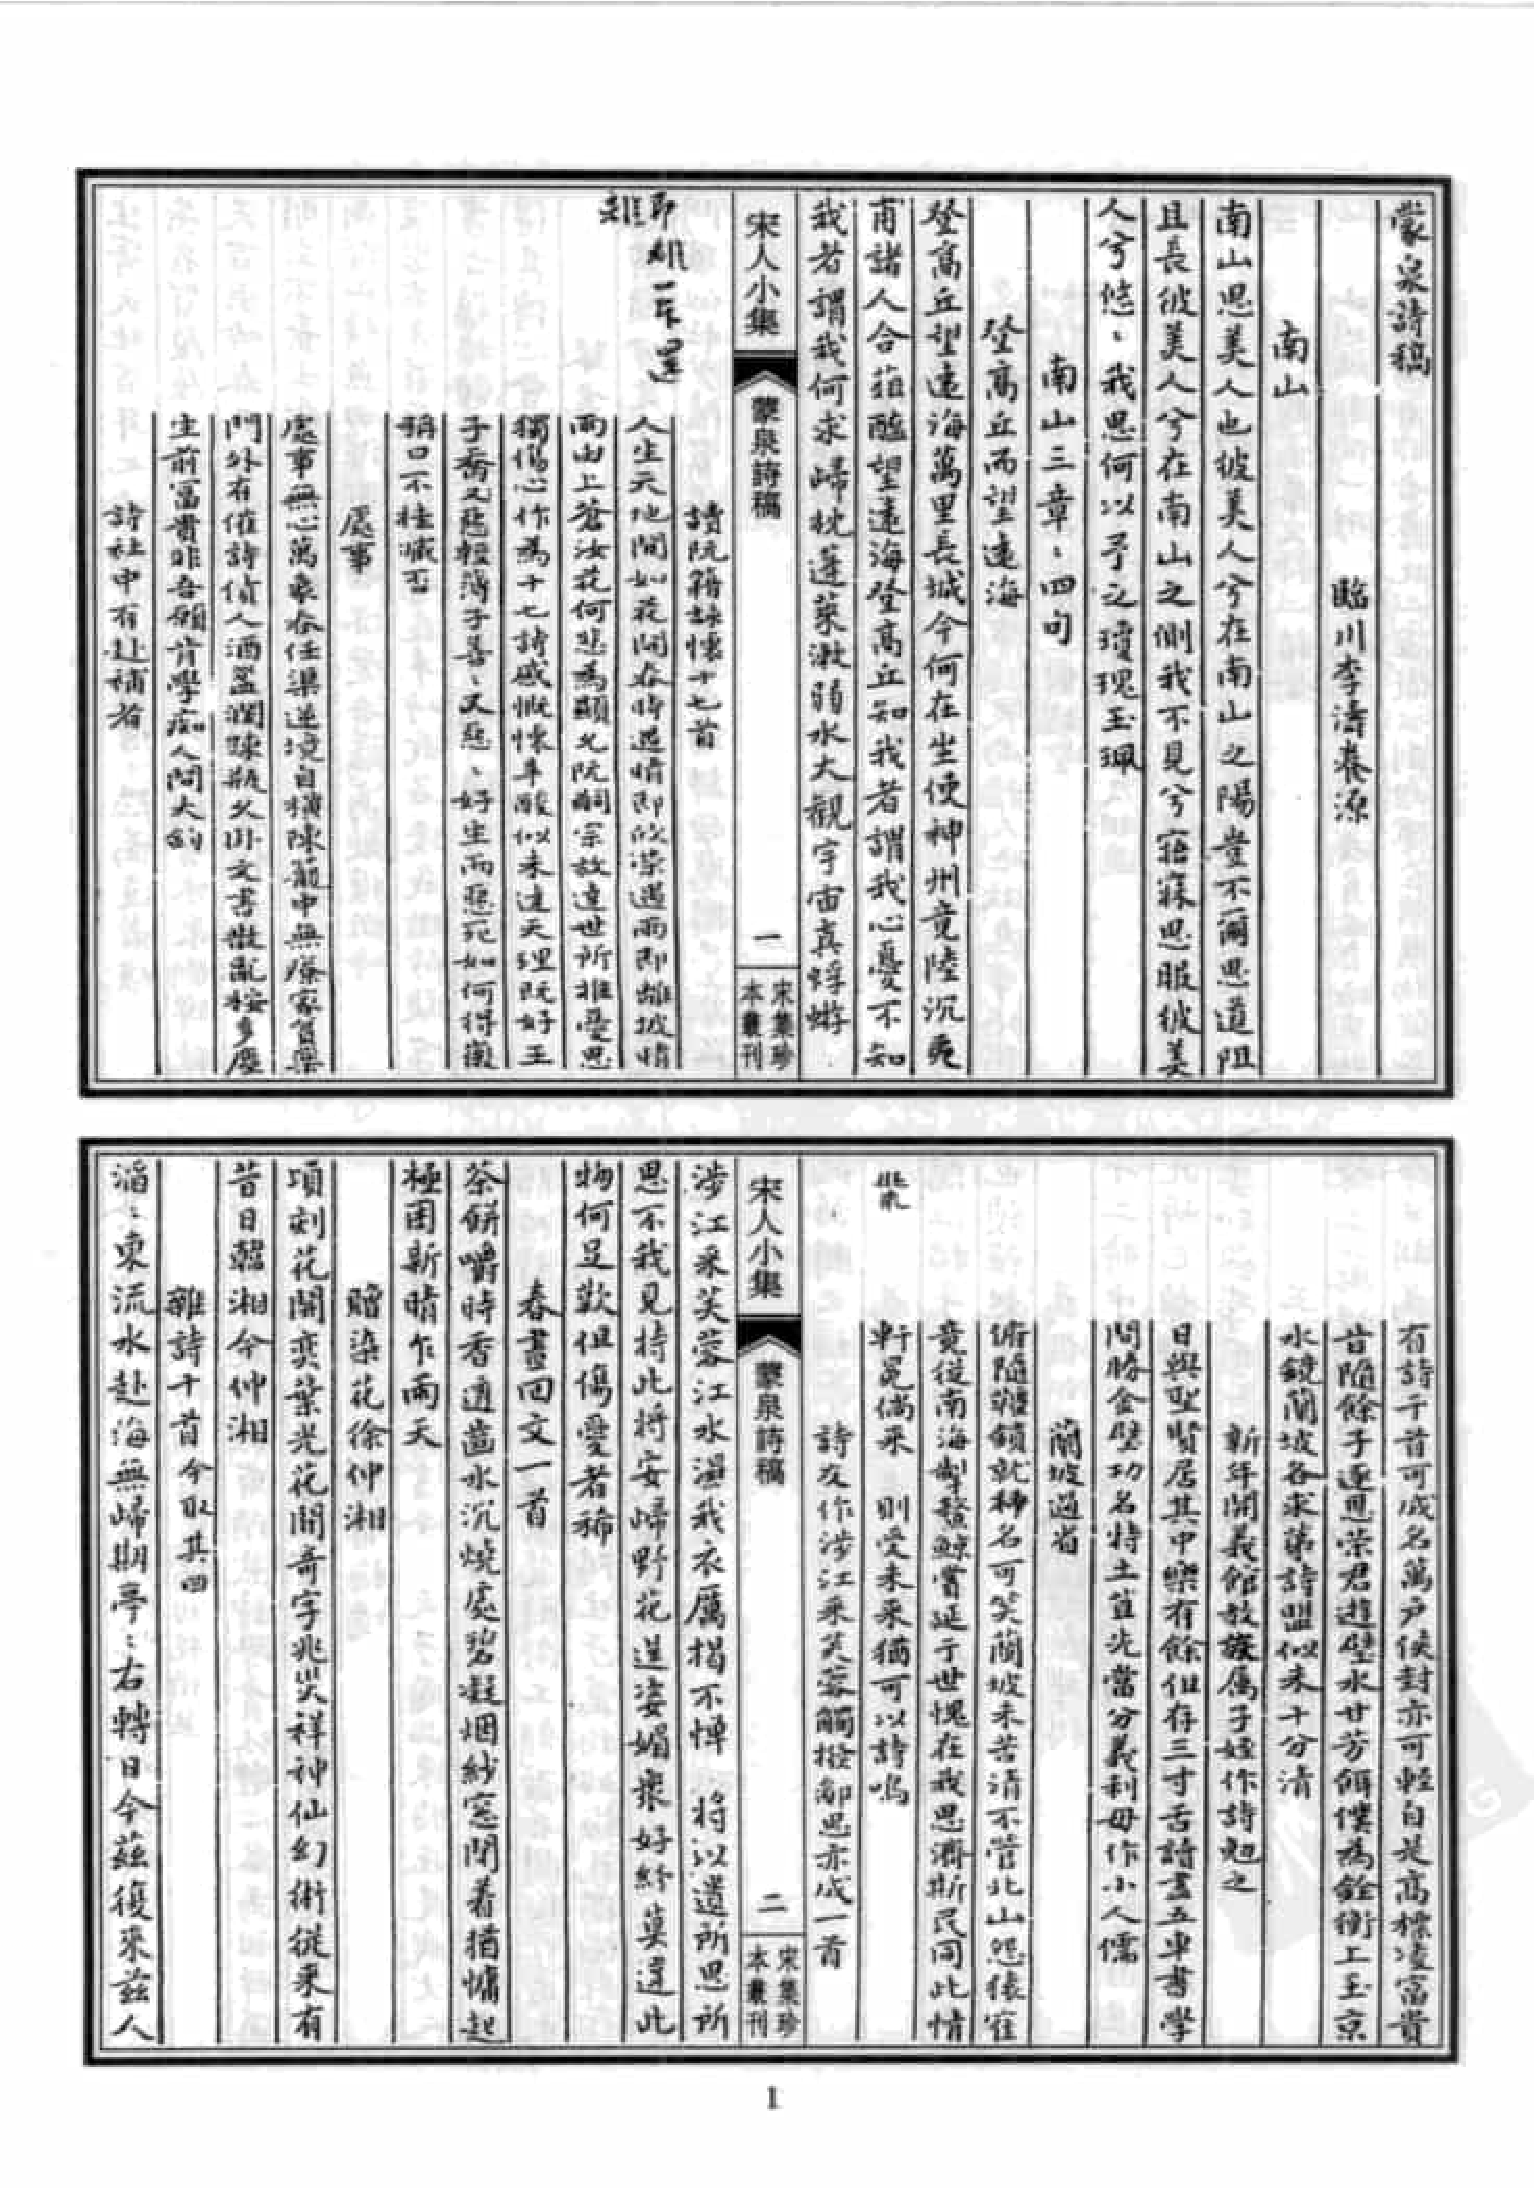 蒙泉詩稿
臨川李濤養源
南山
南山思美人也彼美人兮在南山之陽豈不爾思道阻
且長彼美人兮在南山之側我不見兮寤寐思服彼美
人兮悠〻我思何以予之瓊瑰玉珮
南山三章〻四句
登高丘而望遠海
登高丘望遠海萬里長城今何在坐使神州竟陸沉夷
甫諸人合葅醢望遠海登高丘知我者謂我心憂不知
我者謂我何求歸枕蓬萊漱弱水大觀宇宙真蜉蝣
宋人小集
蒙泉詩稿
一
宋集珍
本叢刊
讀阮籍詠懷十七首
人生天地間如花開春時遇情即成遇雨即離披情
雨由上蒼汝花何悲為顛乂阮嗣宗放達世所推憂思
獨傷心作為十七詩感慨懷辛酸似未達天理既好王
子喬又惡輕薄子善〻又惡〻好生而惡死如何得徽
稱口不挂臧否
處事
處事無心萬象春任渠逆境自橫陳箭中無藥家習藥
門外有催詩債人酒盞潤疎瓶久臥文書散亂按多塵
生前富貴非吾願肯學痴人問大鈞
詩社中有赴補者
有詩千首可成名萬戶侯封亦可輕自是高標凌富貴
昔隨餘子逐恩榮君遊璧水廿芳餌僕為銓衡工玉京
水鏡蘭坡各求第詩盟似未十分清
新年開義館教族属子姪作詩勉之
日與聖賢居其中樂有餘但存三寸舌詩盡五車書學
問勝金璧功名特土苴先當分義利毋作小人儒
蘭坡過省
俯隨韁鎖就科名可笑蘭坡未苦清不管北山怨猿
竟從南海掣蒼鯨賞延于世愧在我思濟斯民同此情
軒冕倘來則受未來猶可以詩鳴
詩友作涉江采芙蓉觸撥鄙思亦成一首
宋人小集
蒙泉詩稿
二
宋集珍
本叢刊
涉江采芙蓉江水濕我衣厲揭不憚將以遺所思所
思不我見持此將安歸野花逞姿媚衆好紛莫違此
物何足歎但傷愛者稀
春晝回文一首
茶餅嚼時香透齒水沉燒處碧凝烟紗窓閉着猶慵起
極困新晴乍雨天
贈染花徐仲湘
頃刻花開奕葉光花開奇字兆災祥神仙幻術從來有
昔日韓湘今仲湘
雜詩十首今取其四
滔〻東流水赴海無歸期亭〻右轉日今茲復來茲人